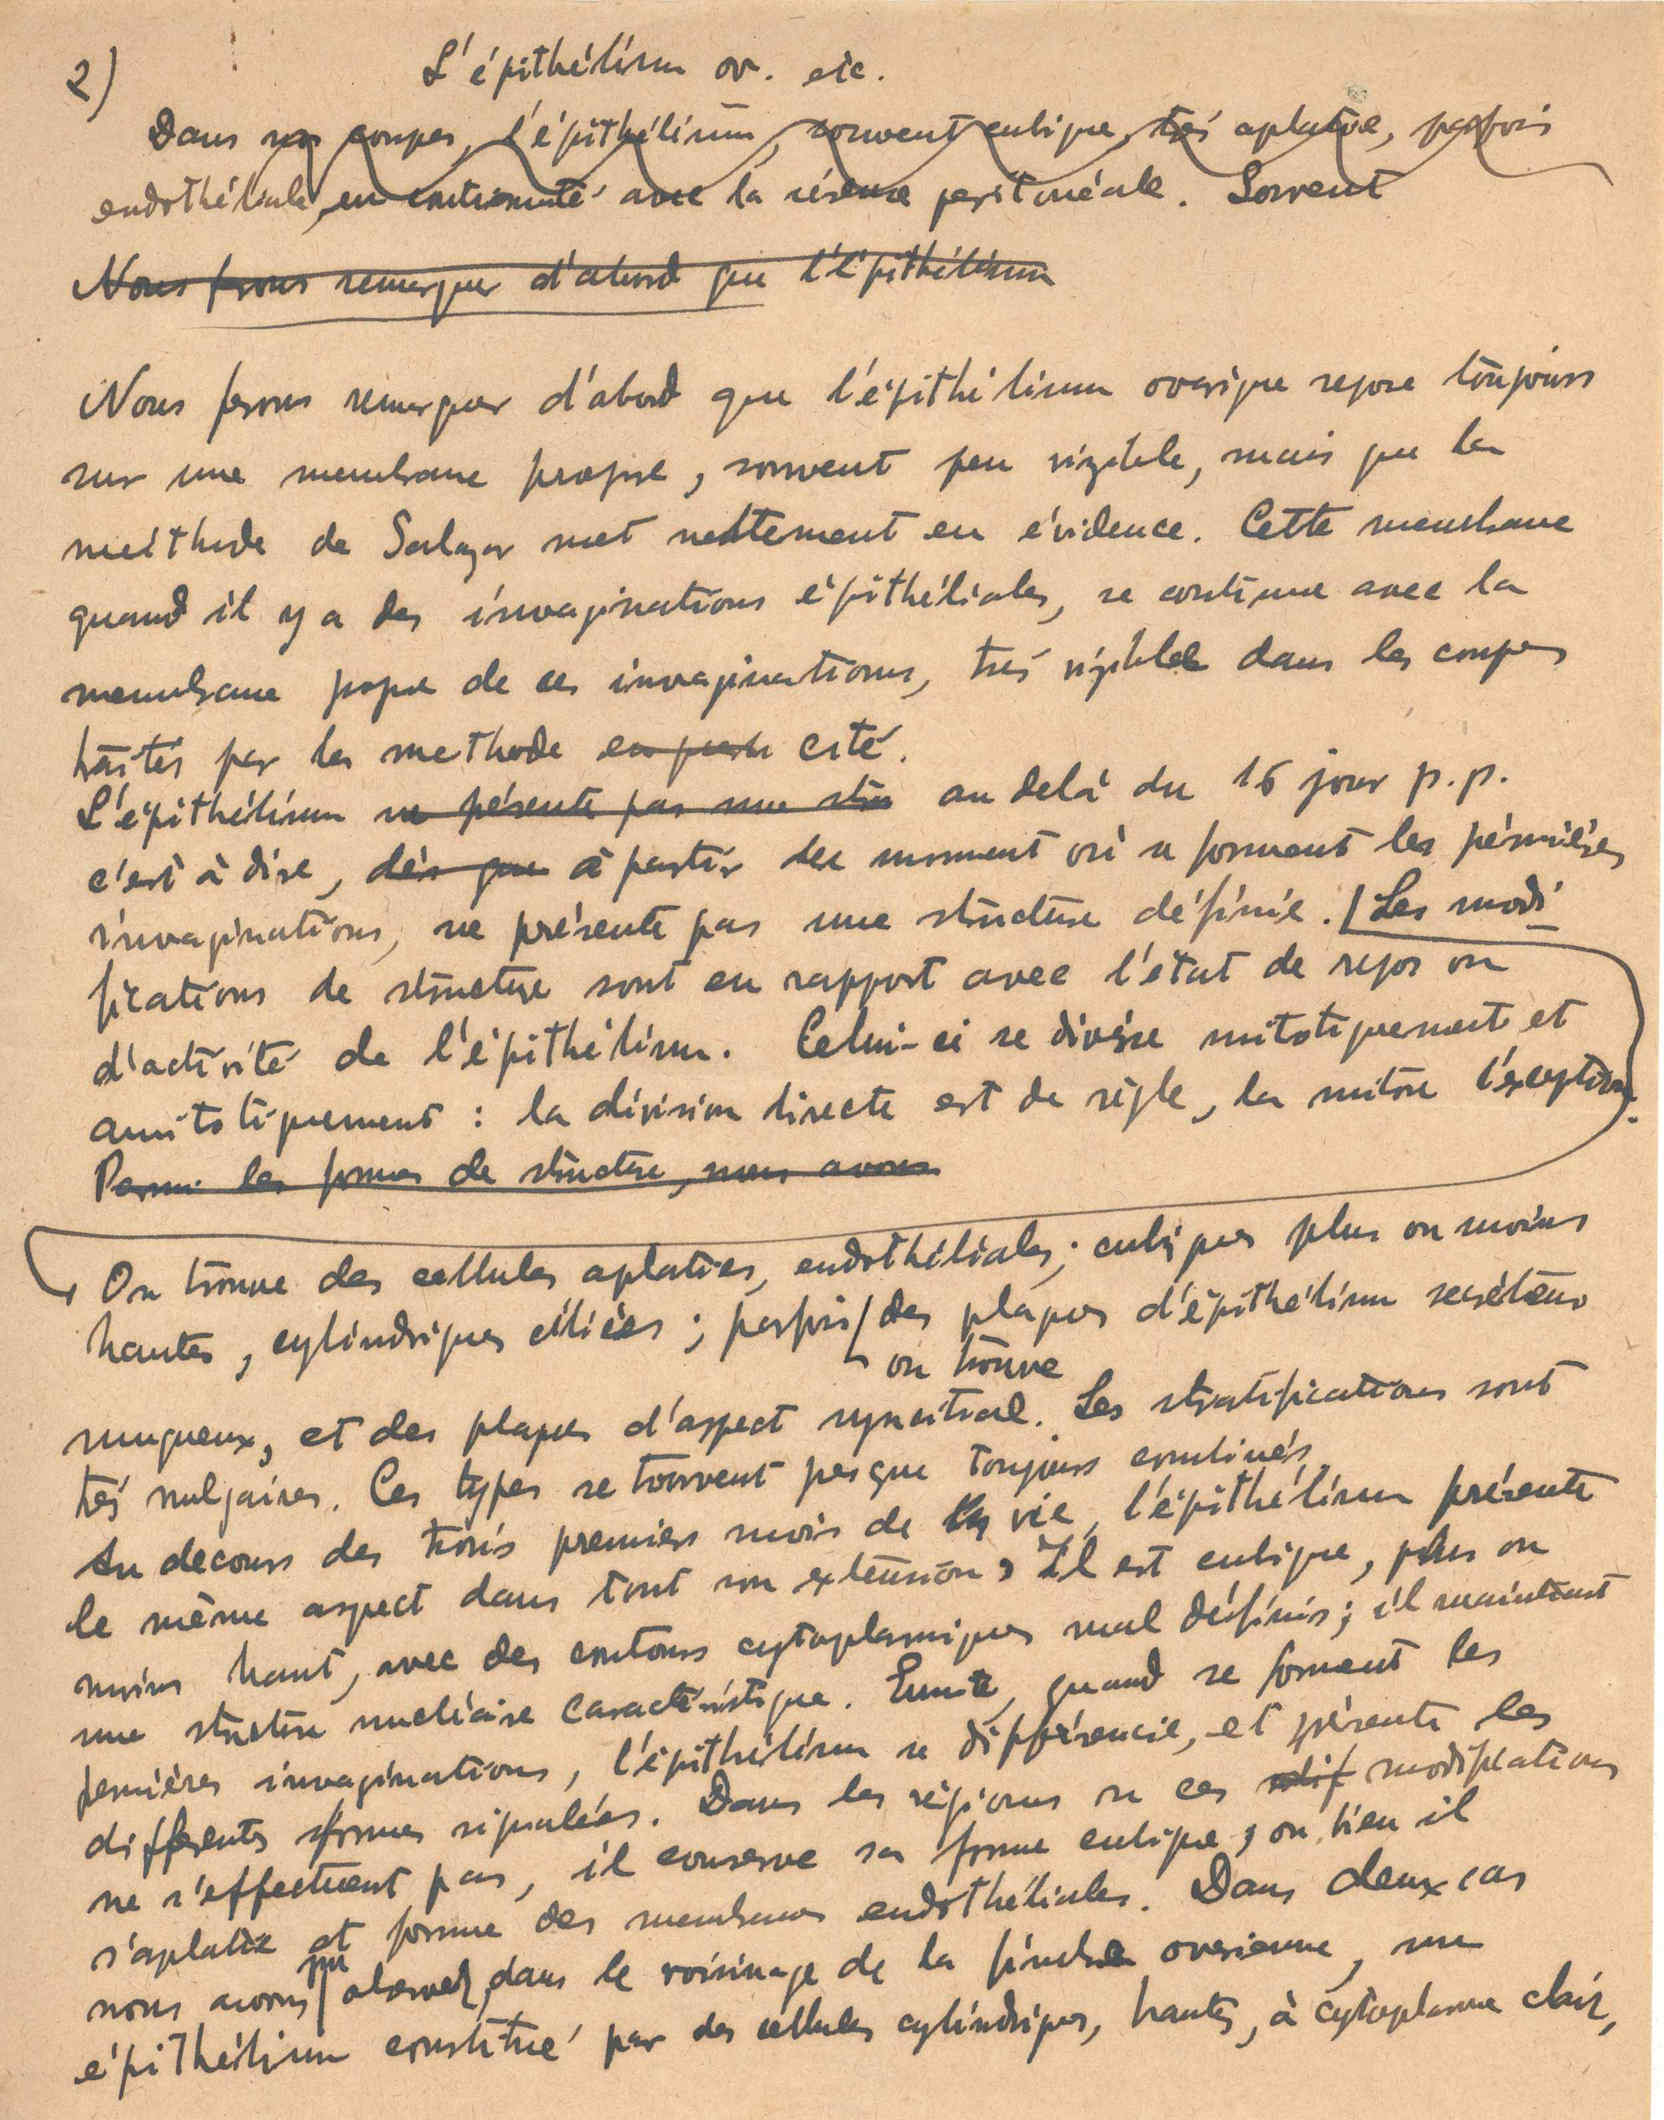 2)
L'épithélium ov. etc.
Dans nos coupes, l'épithélium, souvent cubique, très aplatie, parfois
endothéliale, en continuité avec la séreuse peritonéale. Souvent
Nous ferons remarquer d'abord que l'épithélium
Nous ferons remarquer d'abord que l'épithélium ovarique repose toujours
sur une membrane propre, souvent peu vizible, mais que la
méthode de Salazar met nettement en évidence. Cette membrane
quand il y a des invaginations épithéliales, se continue avec la
membrane propre de ces invaginations, très vizible dans les coupes
traités par la methode cité.
L'épithélium ne présente pas une stru au delà du 16 jour p.p.
c'est à dire, dés que à partir du moment où se forment les prémiéres
invaginations, ne présente pas une structure définie. Les modi
fications de structure sont en rapport avec l'état de repos ou
d'activité de l'épithélium. Celui-ci se divise mitotiquement et
amitotiquement : la division directe est de règle, la mitose l'exception.
Parmi les formes de structure, nous avons
On trouve des cellules aplaties, endothéliales; cubiques plus ou moins
hautes, cylindriques ciliées ; parfois des plaques d'épithélium secréteur
on trouve
muqueux, et des plaques d'aspect syncitial. Les stratifications sont
très vulgaires. Ces types se trouvent presque toujours combinés.
Au decours des trois premiers mois de la vie, l'épithélium présente
le même aspect dans tout son extension, Il est cubique, plus ou
moins haut, avec des contours cytoplasmiques mal définis; il maintient
une structure nucléaire caractéristique. Ensuite, quand se forment les
premières invaginations, l'épithélium se différencie, et présente les
differents formes signalées. Dans les régions où ces modifications
ne s'effectuent pas, il conserve sa forme cubique, ou bien il
s'aplatie et forme des membranes endothéliales. Dans deux cas
nous avons pu observer, dans le voisinage de la fimbria ovarienne, un
épithélium constitué par des cellules cylindriques, hautes, à cytoplasme clair,